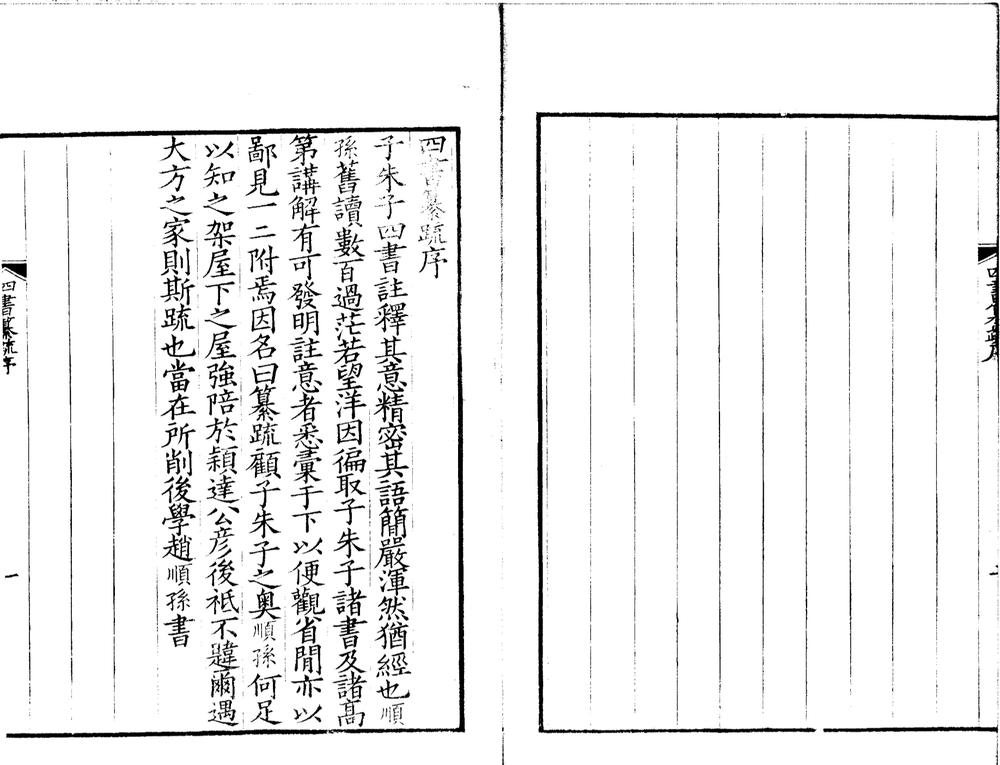 四書纂疏序
子朱子四書註釋其意精密其語簡嚴渾然猶經也順
孫舊讀數百過茫若望洋因徧取子朱子諸書及諸高
第講解有可發明註意者悉彙于下以便觀省間亦以
鄙見一二附焉因名曰纂疏顧子朱子之奥順孫何足
以知之架屋下之屋強陪於穎達公彦後祗不韙爾遇
大方之家則斯疏也當在所削後學趙順孫書
四書纂疏序
一